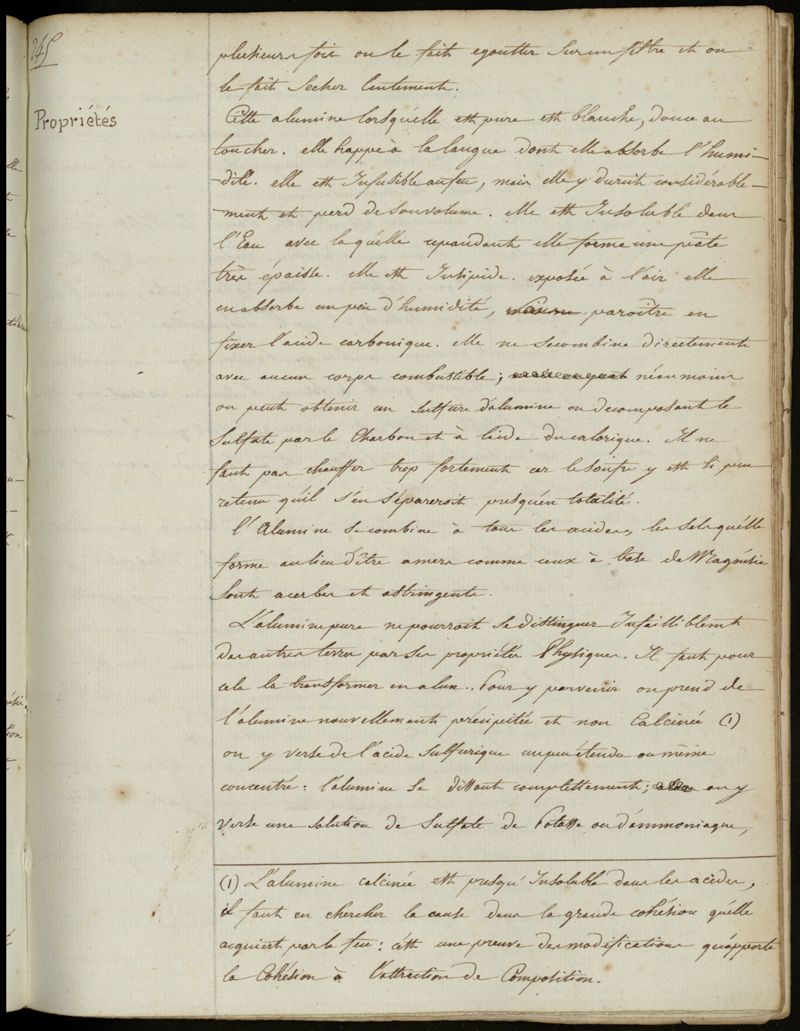 245
plusieurs fois on le fait egoutter sur un filtre et on
le fait Secher lentement.
Propriétés
Cette alumine lorsqu'elle est pure est blanche, douce au
toucher. elle happe à la langue dont elle absorbe l'humi-
-dité. elle est Infusible au feu, mais elle y durcit considérable-
-ment et perd de son volume. elle est Insoluble dans
l'Eau avec laquelle cependant elle forme une pâte
très épaisse. elle est Insipide. exposée à l'air elle
en absorbe un peu d'humidité, paroître en
fixer l'acide carbonique. elle ne se combine directement
avec aucun corps combustible; néanmoins
on peut obtenir un sulfure d'alumine en decomposant le
Sulfate par le Charbon et à l'aide du calorique. Il ne
faut pas chauffer trop fortement car le soufre y est si peu
retenu qu'il s'en sépareroit presqu'en totalité.
l'Alumine se combine à tous les acides, les sels qu'elle
forme au lieu d'être amers comme ceux à base de Magnésie
Sont acerbes et astringents.
L'alumine pure ne pourroit se distinguer Infailliblement
des autres terres par ses propriétés Physiques. Il faut pour
cela la transformer en alun. Pour y parvenir on prend de
l'alumine nouvellement précipitée et non Calcinée (1)
on y verse de l'acide Sulfurique un peu étendu ou même
concentré: l'alumine se dissout complettement; on y
verse une solution de Sulfate de Potasse ou d'ammoniaque,
(1) L'alumine calcinée est presqu'Insoluble dans les acides,
il faut en chercher la cause dans la grande cohésion qu'elle
acquiert par le feu: c'est une preuve des modifications qu'apporte
la Cohésion à l'attraction de Composition.